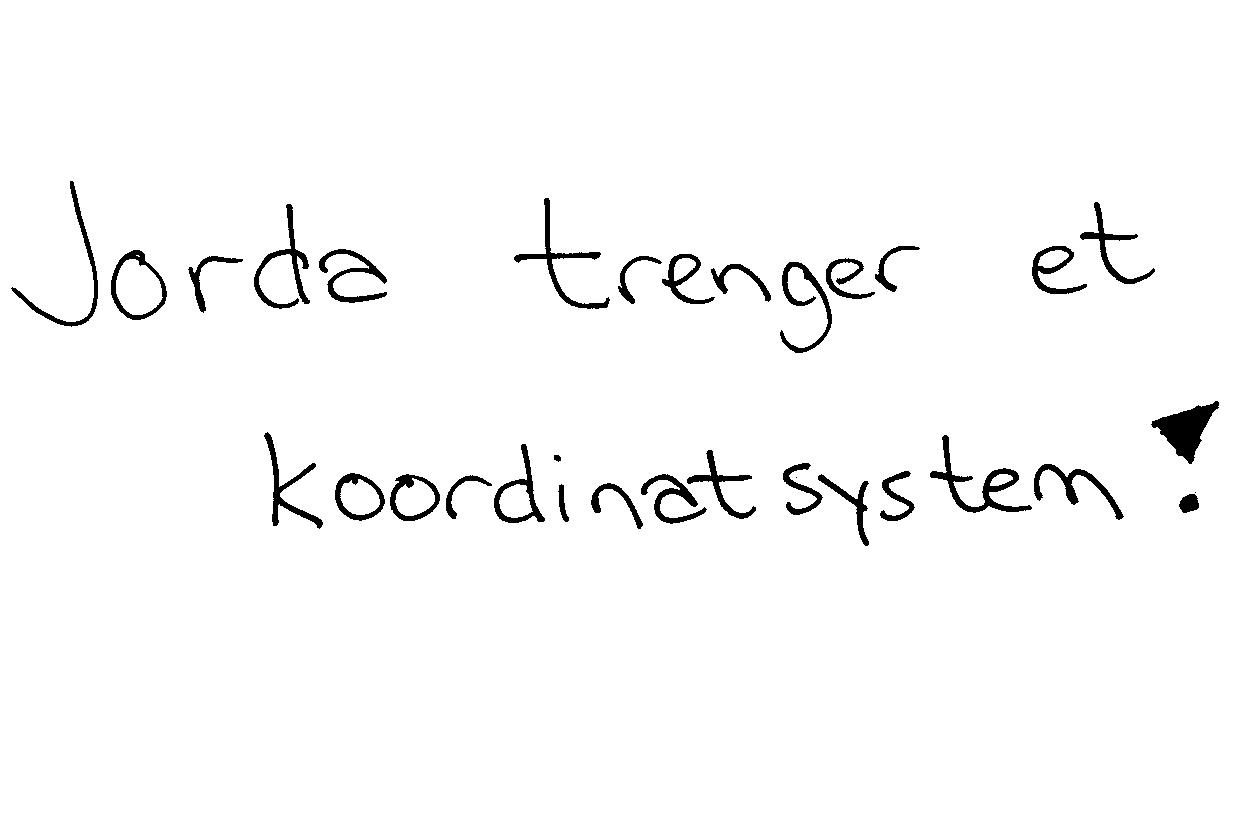 Jorda trenger et
koordinatsystem!